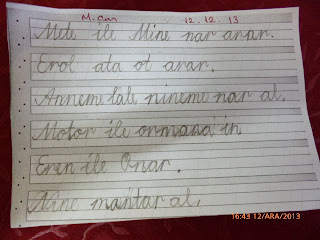 M. Can 12.12.13
Mete ile Mine nar arar.
Erol ata ot arar.
Anneme lale nineme nar al.
Motor ile ormana in
Eren ile Onar.
Nine mantar al.
16:43 12/ARA/2013